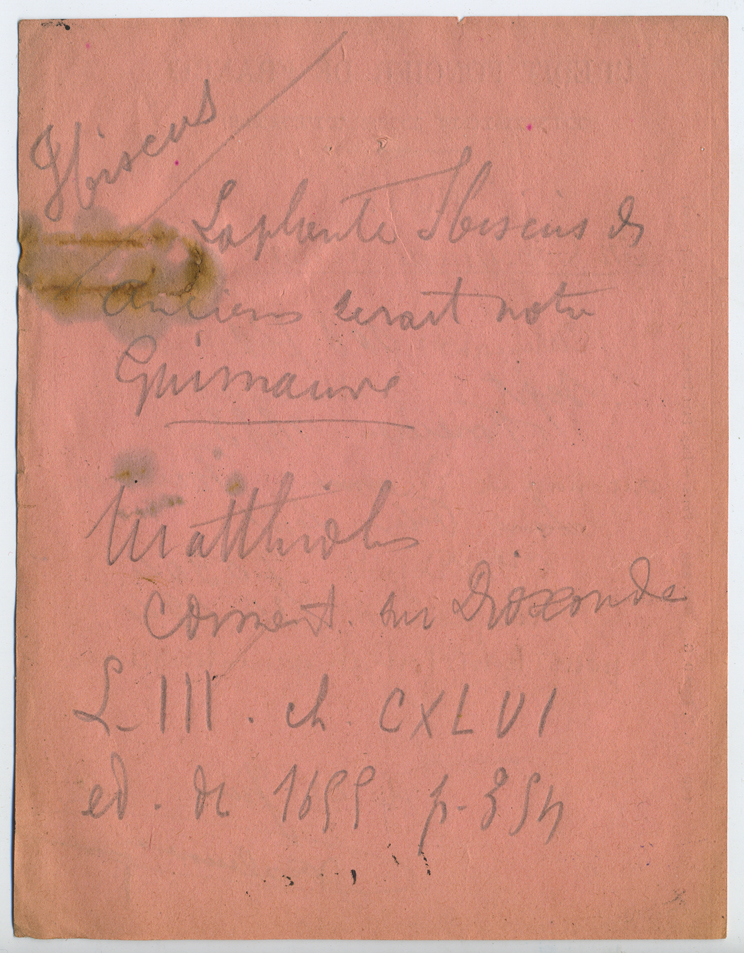 Ibiscus
La plante Ibiscus ds
anciens serait notre
Guimauve
Matthiole
Comment. sur Dioscoride
L. III. ch CXLVI
ed. de 1655 p.